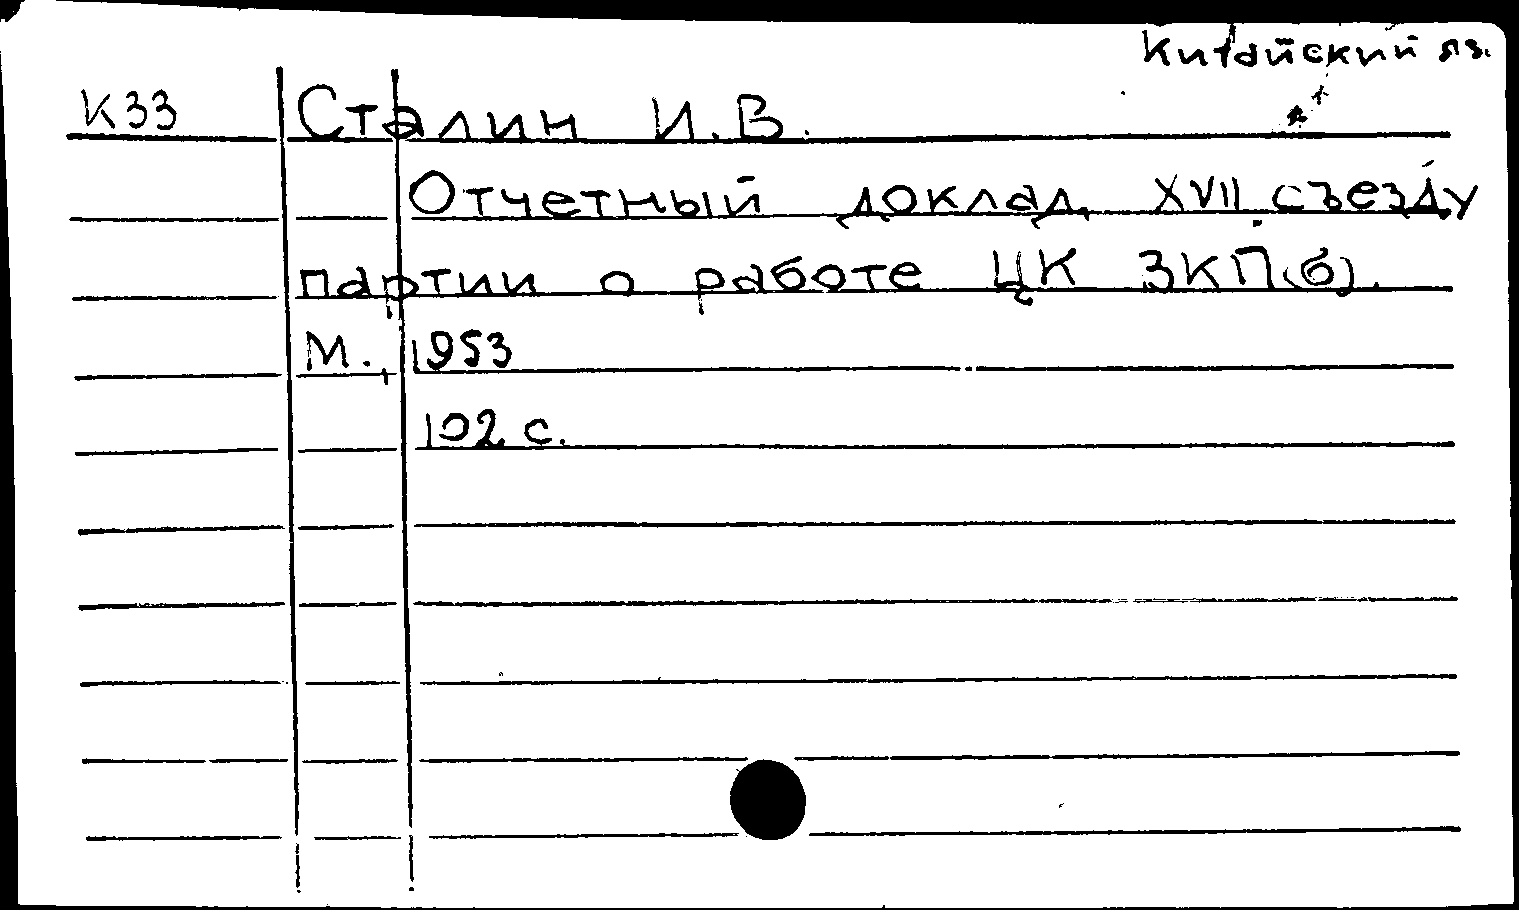 Китайский яз.
К33 Сталин И.В.
Отчетный доклад XVII съезду
партии о работе ЦК ВКП(б).
М., 1953
102 с.